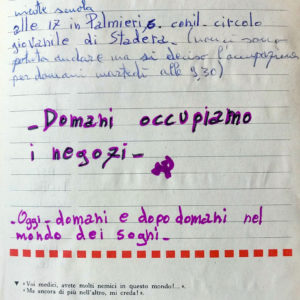 niente scuola
alle 17 in Palmieri, 6. con il circolo
giovanile di Stadera. (non ci sono
potuta andare ma si deciso l'occupazione
per domani martedì alle 9,30)
- Domani occupiamo
i negozi -
- Oggi - domani e dopo domani nel
mondo dei sogni -
▼ « Voi medici, avete molti nemici in questo mondo!... ».
« Ma ancora di più nell'altro, mi creda! ».